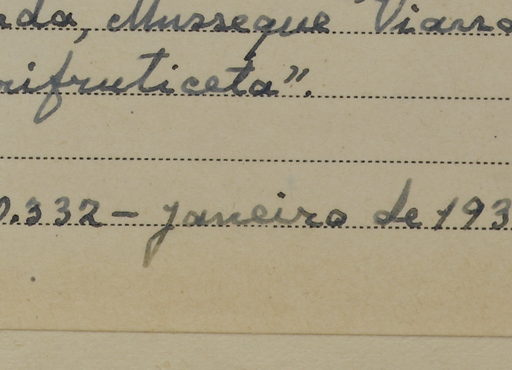 nda, Musseque Viarra
rifruticeta".
0.332 - janeiro de 193